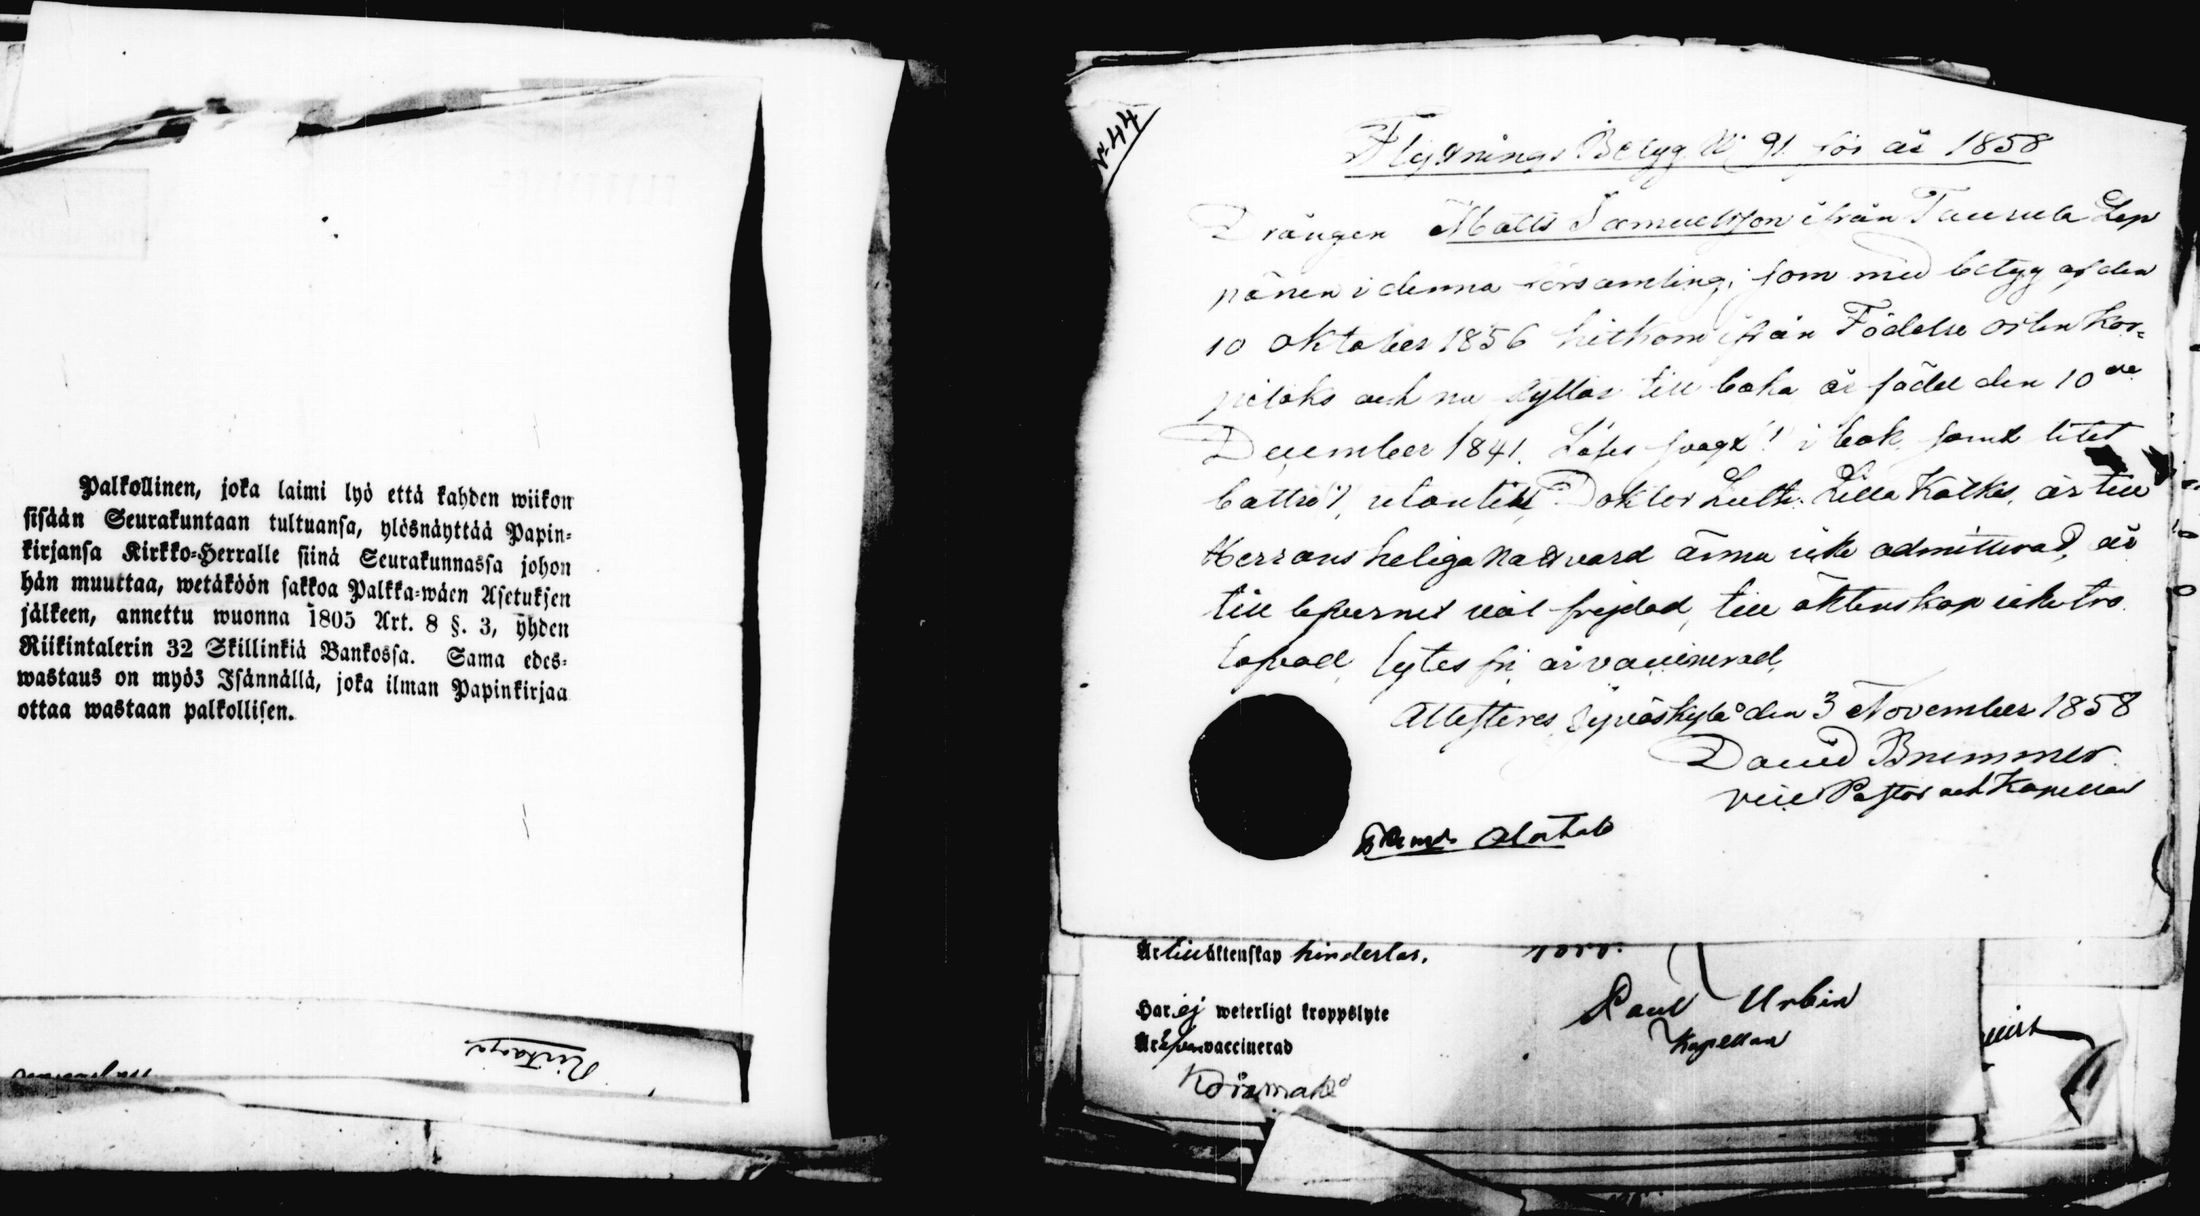 Palkollinen, joka laimi lyö että kahden wiikon
sisään Seurakuntaan tultuansa, ylösnäyttää Papin-
kirjansa Kirkko-Herralle siinä Seurakunnassa johon
hän muuttaa, wetäköön sakkoa Palkka-wäen Asetuksen
jälkeen, annettu wuonna 1805 Art. 8 §. 3, yhden
Riikintalerin 32 Skillinkiä Bankossa. Sama edes-
wastaus on myös Isännällä, joka ilman Papinkirjaa
ottaa wastaan palkollisen.
N 44
Flyttnings Betyg N 91 för år 1858
Drängen Matts Samuelsson ifrån Taurula Lep
pänen i denna församling, som med betyg af den
10 Oktober 1856 hitkom ifrån Födelse orten Kor=
pilaks och nu flyttar till baka är född den 10de
December 1841. Läser svagt i bok samt litet
bättre utantill Doktor Luth: Lilla Katkes, är till
Herrans heliga nattvard ännu icke admitterad, är
till lefvernet väl frejdad, till äktenskap icke tro
lofvad, lytes fri, är vaccinerad,
Attesteres, Jyväskylä den 3 November 1858
David Brummer
vice Pastor och Kapellan
Alatalo
Är till äktenskap hinderlös.
Har ej weterligt kroppslyte
Paul Urbin
Är vaccinerad
Kapellan